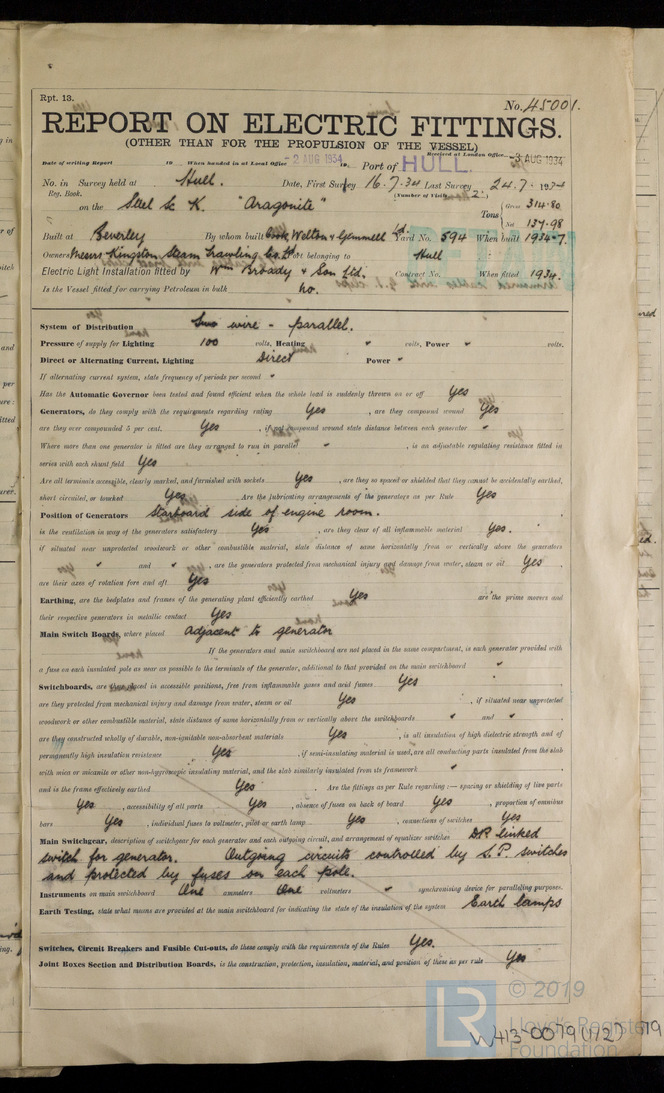 Rpt. 13.
No. 45001.
REPORT ON ELECTRIC FITTINGS.
(OTHER THAN FOR THE PROPULSION OF THE VESSEL)
Date of writing Report 19 When handed in at Local Office - 2 AUG 1934 19 Port of HULL. Received at London Office - 3 AUG 1934
No. in Survey held at Hull. Date, First Survey 16.7.34 Last Survey 24.7.1934
Reg. Book. (Number of Visits 2.)
on the Steel Sc K. "Aragonite" Tons Gross 314.80 Net 137.98
Built at Beverley By whom built Cook, Welton & Gemmell Ld. Yard No. 594 When built 1934-7.
Owners Messrs Kingston Steam Trawling Co. Ld. Port belonging to Hull
Electric Light Installation fitted by Wm Broady & Son Ltd. Contract No. When fitted 1934.
Is the Vessel fitted for carrying Petroleum in bulk no.
System of Distribution Two wire - parallel.
Pressure of supply for Lighting 100 volts, Heating " volts, Power " volts.
Direct or Alternating Current, Lighting Direct Power "
If alternating current system, state frequency of periods per second "
Has the Automatic Governor been tested and found efficient when the whole load is suddenly thrown on or off Yes
Generators, do they comply with the requirements regarding rating Yes, are they compound wound Yes
are they over compounded 5 per cent. Yes, if not compound wound state distance between each generator "
Where more than one generator is fitted are they arranged to run in parallel ", is an adjustable regulating resistance fitted in
series with each shunt field Yes
Are all terminals accessible, clearly marked, and furnished with sockets Yes, are they so spaced or shielded that they cannot be accidentally earthed,
short circuited, or touched Yes. Are the lubricating arrangements of the generators as per Rule Yes
Position of Generators Starboard side of engine room.
is the ventilation in way of the generators satisfactory Yes, are they clear of all inflammable material Yes.
if situated near unprotected woodwork or other combustible material, state distance of same horizontally from or vertically above the generators
" and ", are the generators protected from mechanical injury and damage from water, steam or oil Yes,
are their axes of rotation fore and aft Yes
Earthing, are the bedplates and frames of the generating plant efficiently earthed Yes are the prime movers and
their respective generators in metallic contact Yes
Main Switch Boards, where placed Adjacent to generator
If the generators and main switchboard are not placed in the same compartment, is each generator provided with
a fuse on each insulated pole as near as possible to the terminals of the generator, additional to that provided on the main switchboard "
Switchboards, are they placed in accessible positions, free from inflammable gases and acid fumes Yes,
are they protected from mechanical injury and damage from water, steam or oil Yes, if situated near unprotected
woodwork or other combustible material, state distance of same horizontally from or vertically above the switchboards " and ",
are they constructed wholly of durable, non-ignitable non-absorbent materials Yes, is all insulation of high dielectric strength and of
permanently high insulation resistance Yes, if semi-insulating material is used, are all conducting parts insulated from the slab
with mica or micanite or other non-hygroscopic insulating material, and the slab similarly insulated from its framework "
and is the frame effectively earthed Yes. Are the fittings as per Rule regarding :— spacing or shielding of live parts
Yes, accessibility of all parts Yes, absence of fuses on back of board Yes, proportion of omnibus
bars Yes, individual fuses to voltmeter, pilot or earth lamp Yes, connections of switches Yes
Main Switchgear, description of switchgear for each generator and each outgoing circuit, and arrangement of equalizer switches DP linked
switch for generator. Outgoing circuits controlled by S.P. switches
and protected by fuses on each pole.
Instruments on main switchboard One ammeters One voltmeters " synchronising device for paralleling purposes.
Earth Testing, state what means are provided at the main switchboard for indicating the state of the insulation of the system Earth lamps
Switches, Circuit Breakers and Fusible Cut-outs, do these comply with the requirements of the Rules Yes.
Joint Boxes Section and Distribution Boards, is the construction, protection, insulation, material, and position of these as per rule Yes
© 2019
LR Lloyd's Register
Foundation
W413-0079 (1/2)